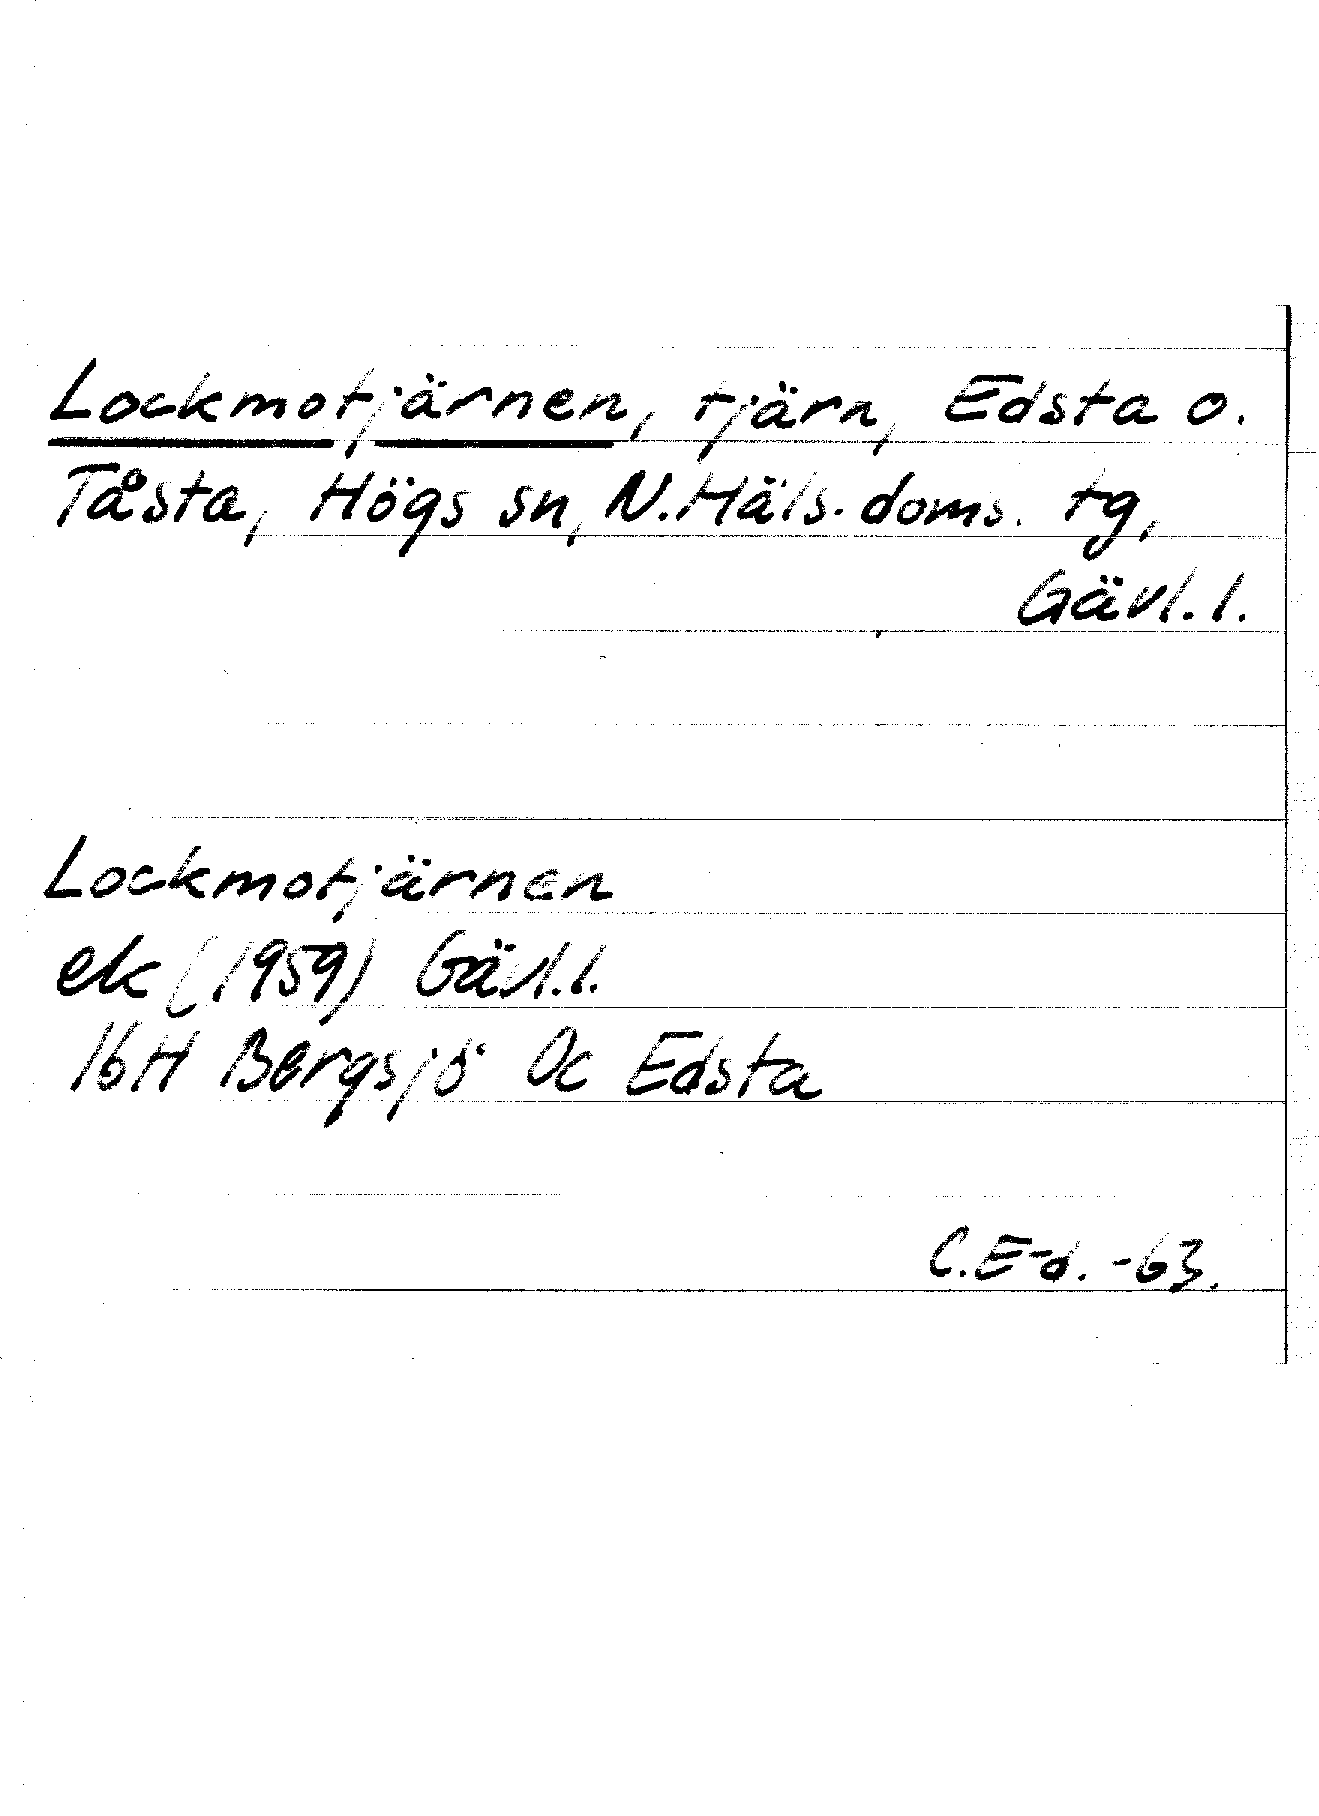 Lockmotjärnen, tjärn, Edsta o.
Tåsta, Högs sn, N. Häls. doms. tg,
Gävl. l.
Lockmotjärnen
ek (1959) Gävl. l.
16H Bergsjö 0c Edsta
C. E-d. -63.